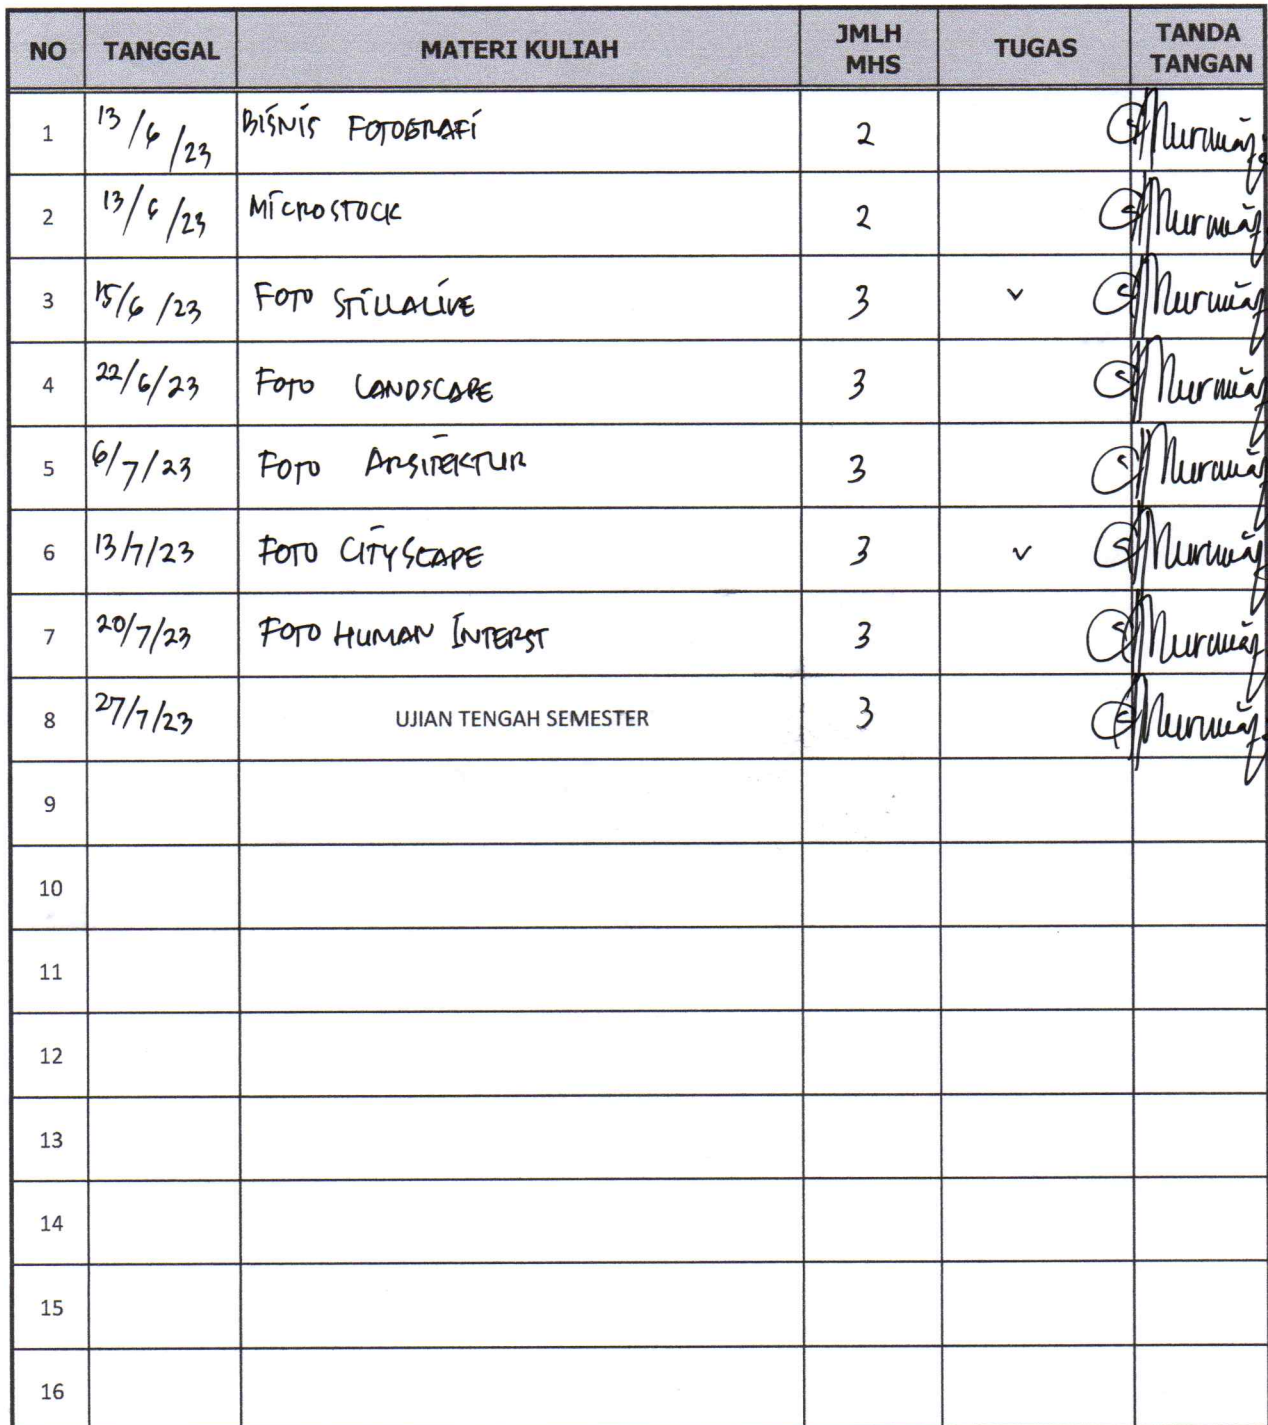 NO TANGGAL MATERI KULIAH JMLH MHS TUGAS TANDA TANGAN
1 13/6/23 BISNIS FOTOGRAFI 2
2 13/6/23 MICROSTOCK 2
3 15/6/23 FOTO STILLALIVE 3 v
4 22/6/23 FOTO LANDSCAPE 3
5 6/7/23 FOTO ARSITEKTUR 3
6 13/7/23 FOTO CITYSCAPE 3 v
7 20/7/23 FOTO HUMAN INTERST 3
8 27/7/23 UJIAN TENGAH SEMESTER 3
9
10
11
12
13
14
15
16